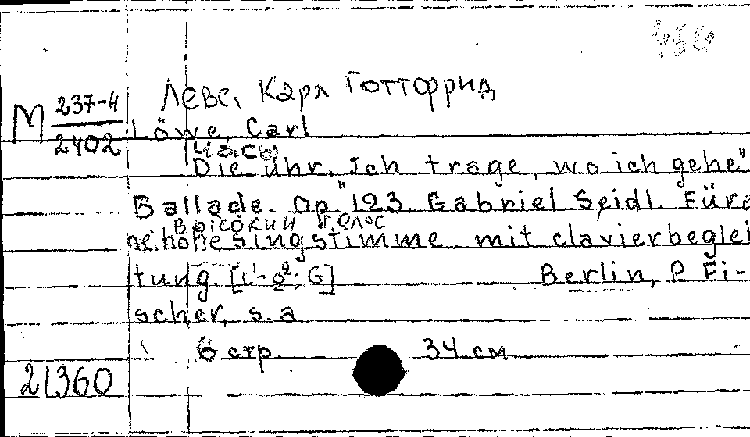 450
Леве, Карл Готтфрид
М 237-4
2402
Löwe, Carl
Часы
Die Uhr. "Ich trage, wo ich gehe"
Ballade. Op. 123. Gabriel Seidl. Für ei
высокий голос
ne hohe Singstimme mit clavierbeglei
tung. [c'-g²; G] Berlin, P. Fi-
scher, s. a
6 стр. 34 см
21360